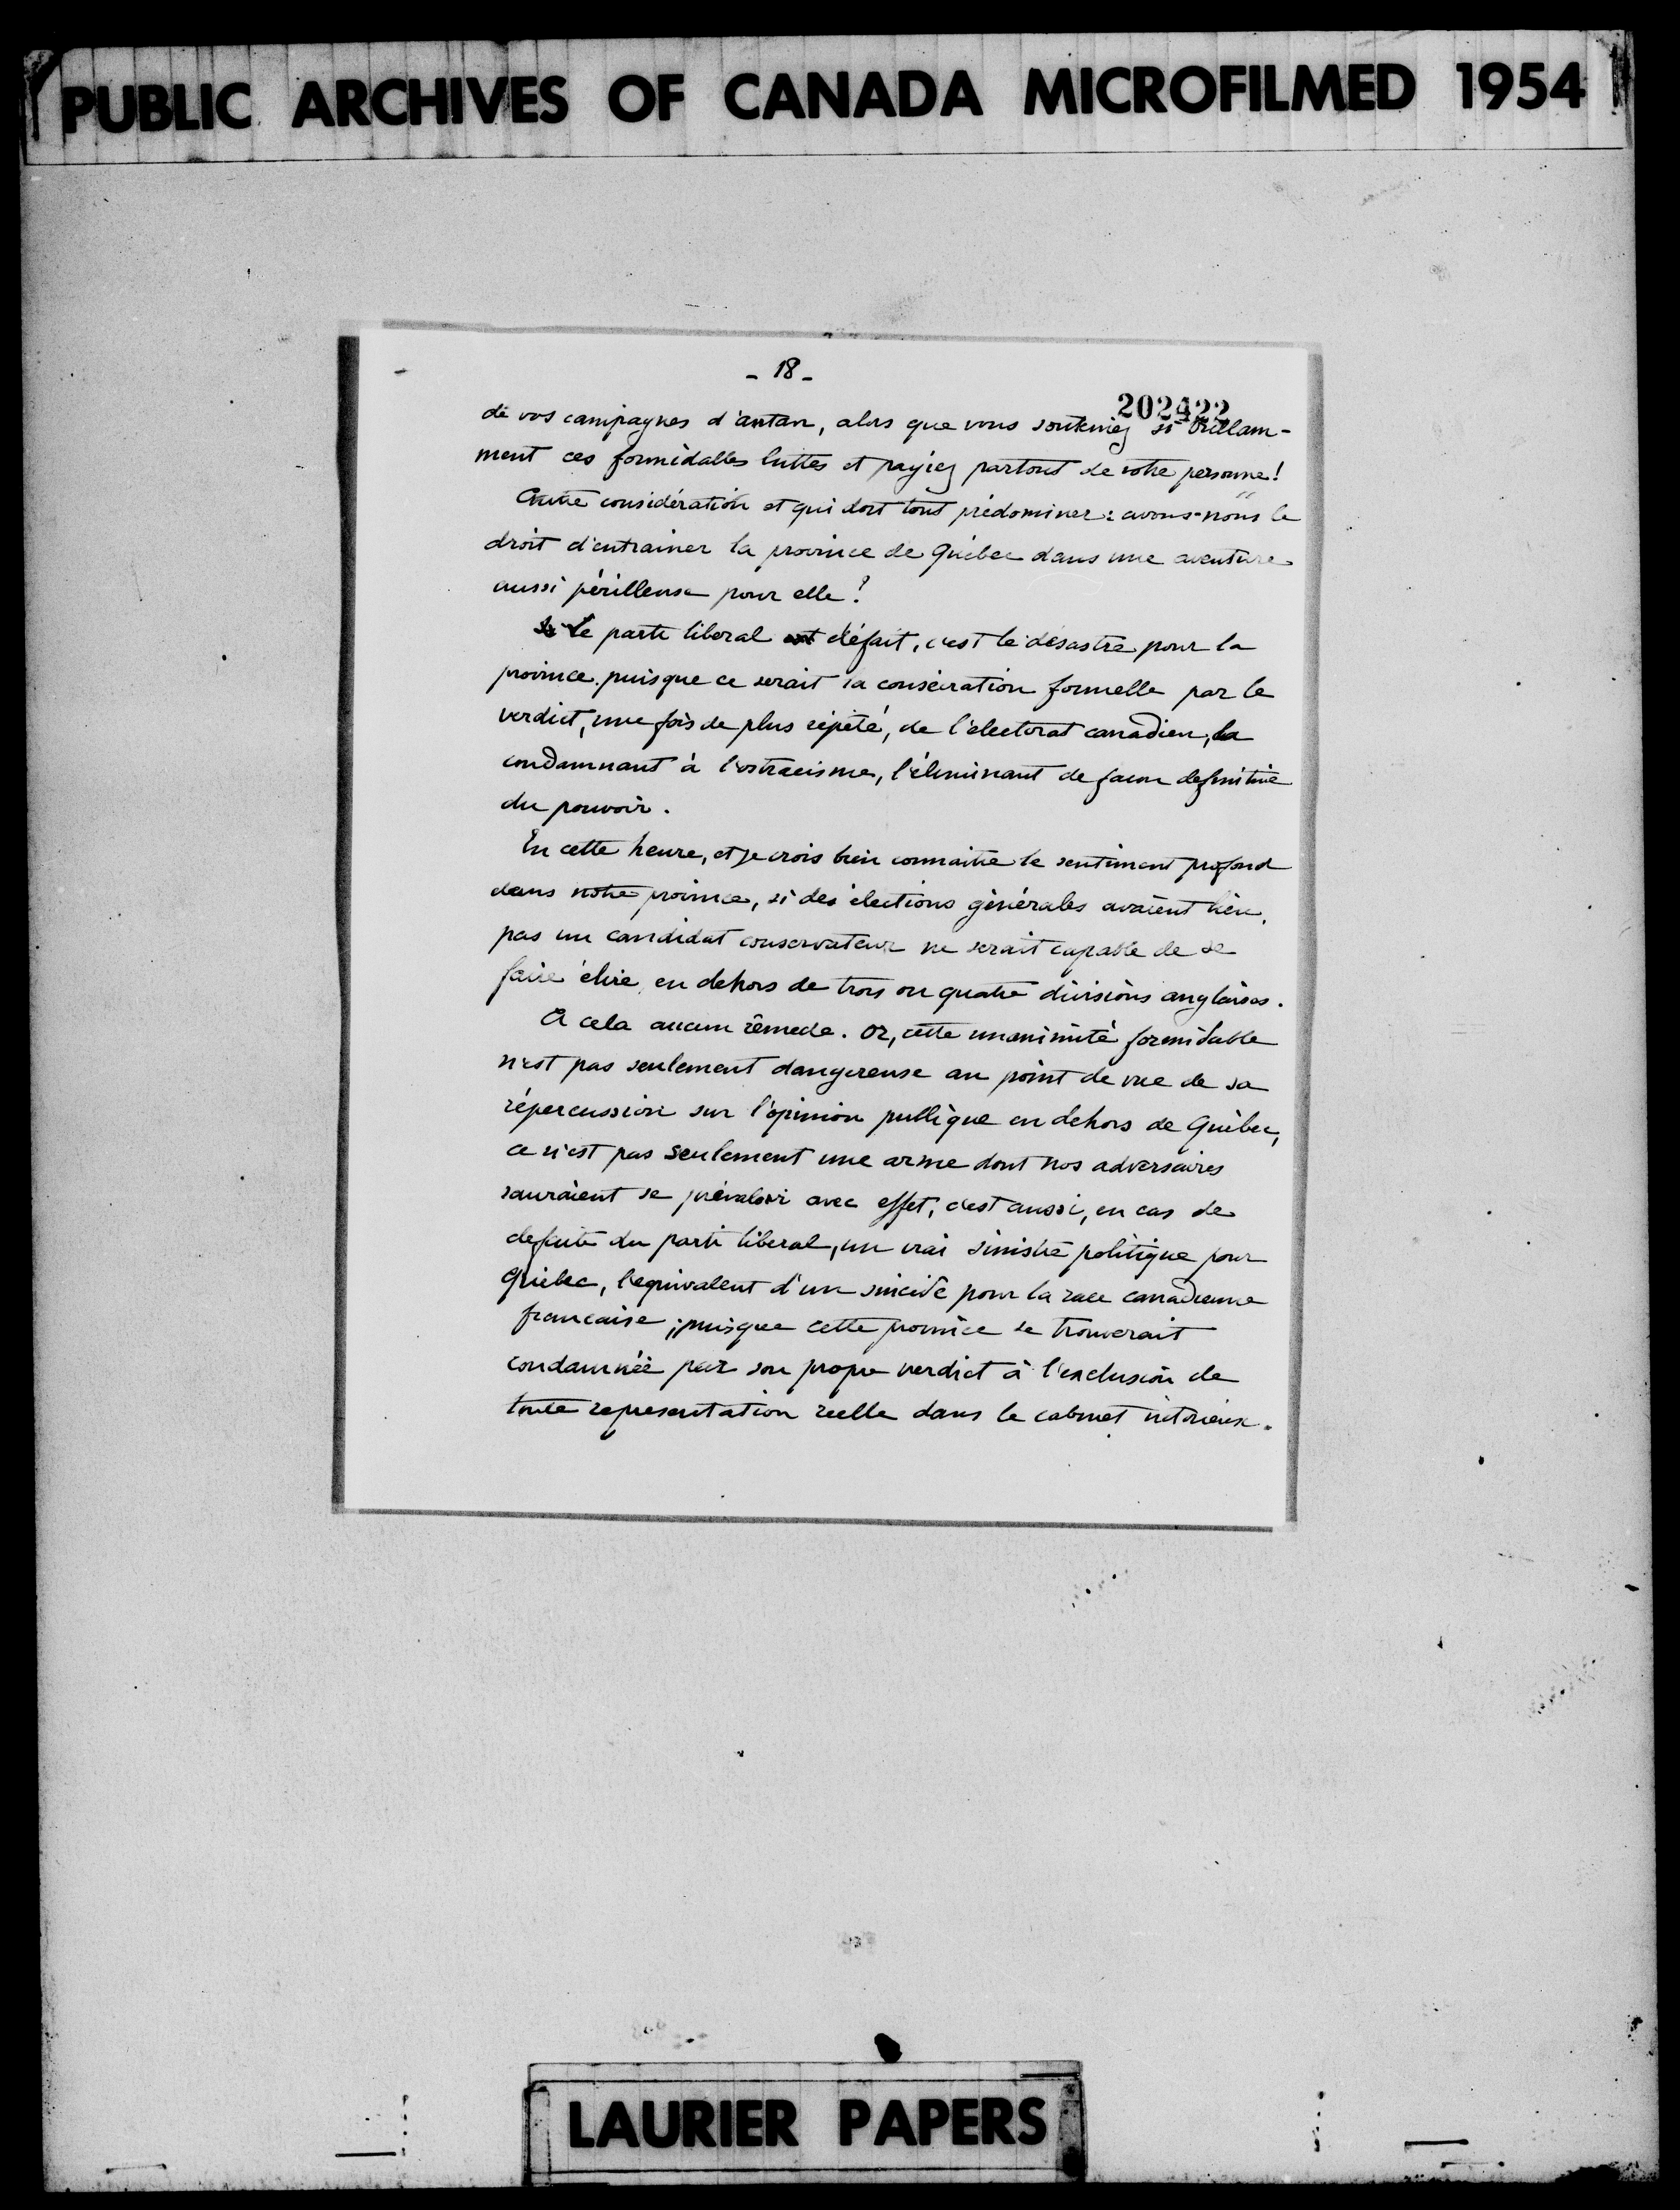 PUBLIC ARCHIVES OF CANADA MICROFILMED 1954
- 18 -
202422
de vos campagnes d'antan, alors que vous souteniez si brillam-
ment ces formidables luttes et payiez partout de votre personne!
Autre considération et qui doit tout prédominer: avons-nous le
droit d'entrainer la province de Québec dans une aventure
aussi périlleuse pour elle?
Le parti liberal défait, c'est le désastre pour la
province puisque ce serait sa consécration formelle par le
verdict, une fois de plus répété, de l'électorat canadien, la
condamnant à l'ostracisme, l'éliminant de facon definitive
du pouvoir.
En cette heure, et je crois bien connaitre le sentiment profond
dans notre province, si des élections générales avaient lieu,
pas un candidat conservateur ne serait capable de se
faire élire en dehors de trois ou quatre divisions anglaises.
A cela aucun rémede. Or, cette unanimité formidable
n'est pas seulement dangereuse au point de vue de sa
répercussion sur l'opinion publique en dehors de Québec,
ce n'est pas seulement une arme dont nos adversaires
sauraient se prévaloir avec effet, c'est aussi, en cas de
defaite du parti liberal, un vrai sinistre politique pour
Québec, l'equivalent d'un suicide pour la race canadienne
francaise; puisque cette province se trouverait
condamnée par son propre verdict à l'exclusion de
toute representation reelle dans le cabinet victorieux.
LAURIER PAPERS